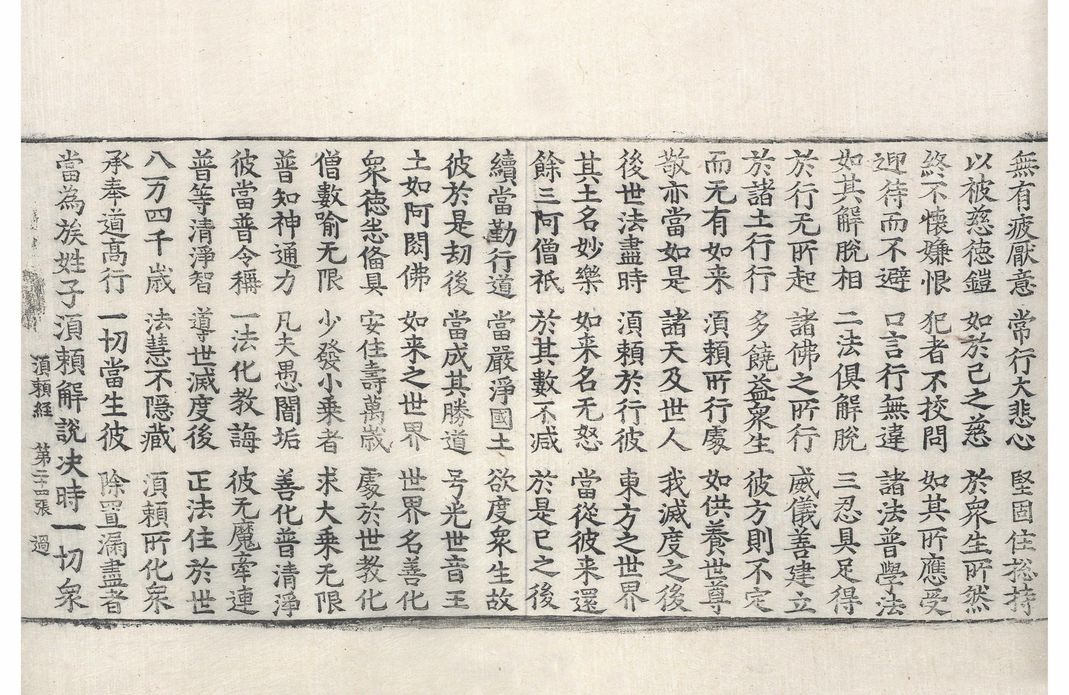 無有疲厭意　常行大悲心　堅固住捴持
以被慈德鎧　如於己之慈　於衆生所然
終不懷嫌恨　犯者不挍問　如其所應受
迎待而不避　口言行無違　諸法普學法
如其解脫相　二法俱解脫　三忍具足得
於行无所起　諸佛之所行　威儀善建立
於諸土行行　多饒益衆生　彼方則不定
而无有如来　湏賴所行處　如供養世尊
敬亦當如是　諸天及世人　我滅度之後
後世法盡時　湏賴於行彼　東方之世界
其土名妙樂　如来名无怒　當從彼来還
餘三阿僧祇　於其數不減　於是已之後
續當勤行道　當嚴淨國土　欲度衆生故
彼於是劫後　當成其勝道　号光世音王
土如阿閦佛　如来之世界　世界名善化
衆德悉俻具　安住壽萬歳　處於世教化
僧數喻无限　少發小乘者　求大乘无限
普知神通力　凡夫愚闇垢　善化普清淨
彼當普令稱　一法化教誨　彼无魔牽連
普等清淨智　導世滅度後　正法住於世
八万四千歳　法慧不隱藏　湏賴所化衆
承奉道高行　一切當生彼　除置漏盡者
當為族姓子湏賴解說决時一切衆
湏賴經　第二十四張　過